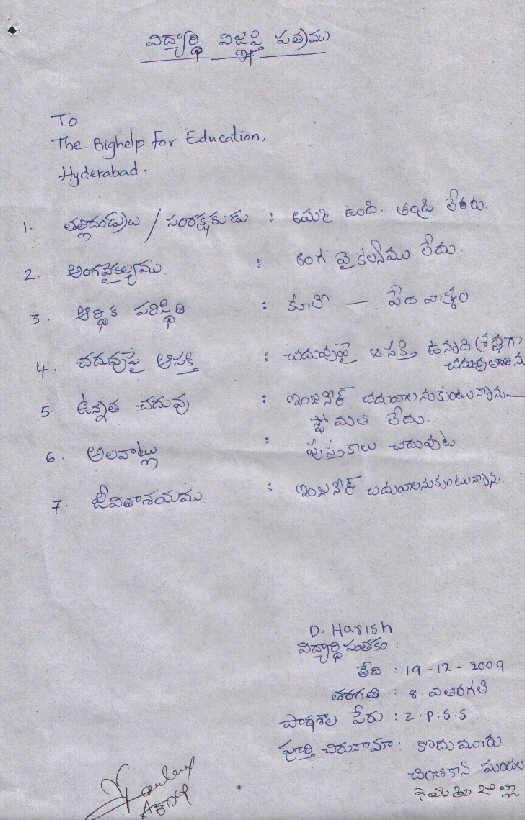 విద్యార్థి విజ్ఞప్తి పత్రము
To
The Bighelp For Education,
Hyderabad.
1. తల్లిదండ్రులు / సంరక్షకుడు : అమ్మ ఉంది. తండ్రి లేడు.
2. అంగవైకల్యము : అంగ వైకల్యము లేదు.
3. ఆర్థిక పరిస్థితి : కూలి — పేద వాళ్ళం
4. చదువుపై ఆసక్తి : చదువుపై ఆసక్తి ఉన్నది శ్రద్ధగా
చదువుతాను
5. ఉన్నత చదువు : ఇంజనీర్ చదవాలనుకుంటున్నాను.
స్తోమత లేదు.
6. అలవాట్లు : పుస్తకాలు చదువుట
7. జీవితాశయము : ఇంజనీర్ చదువాలనుకుంటున్నాను.
D. Harish
విద్యార్థి సంతకం
తేది : 19-12-2009
తరగతి : 8 వ తరగతి
పాఠశాల పేరు : Z.P.S.S
పూర్తి చిరునామా : కొదుమూరు
చింతకాని మండల